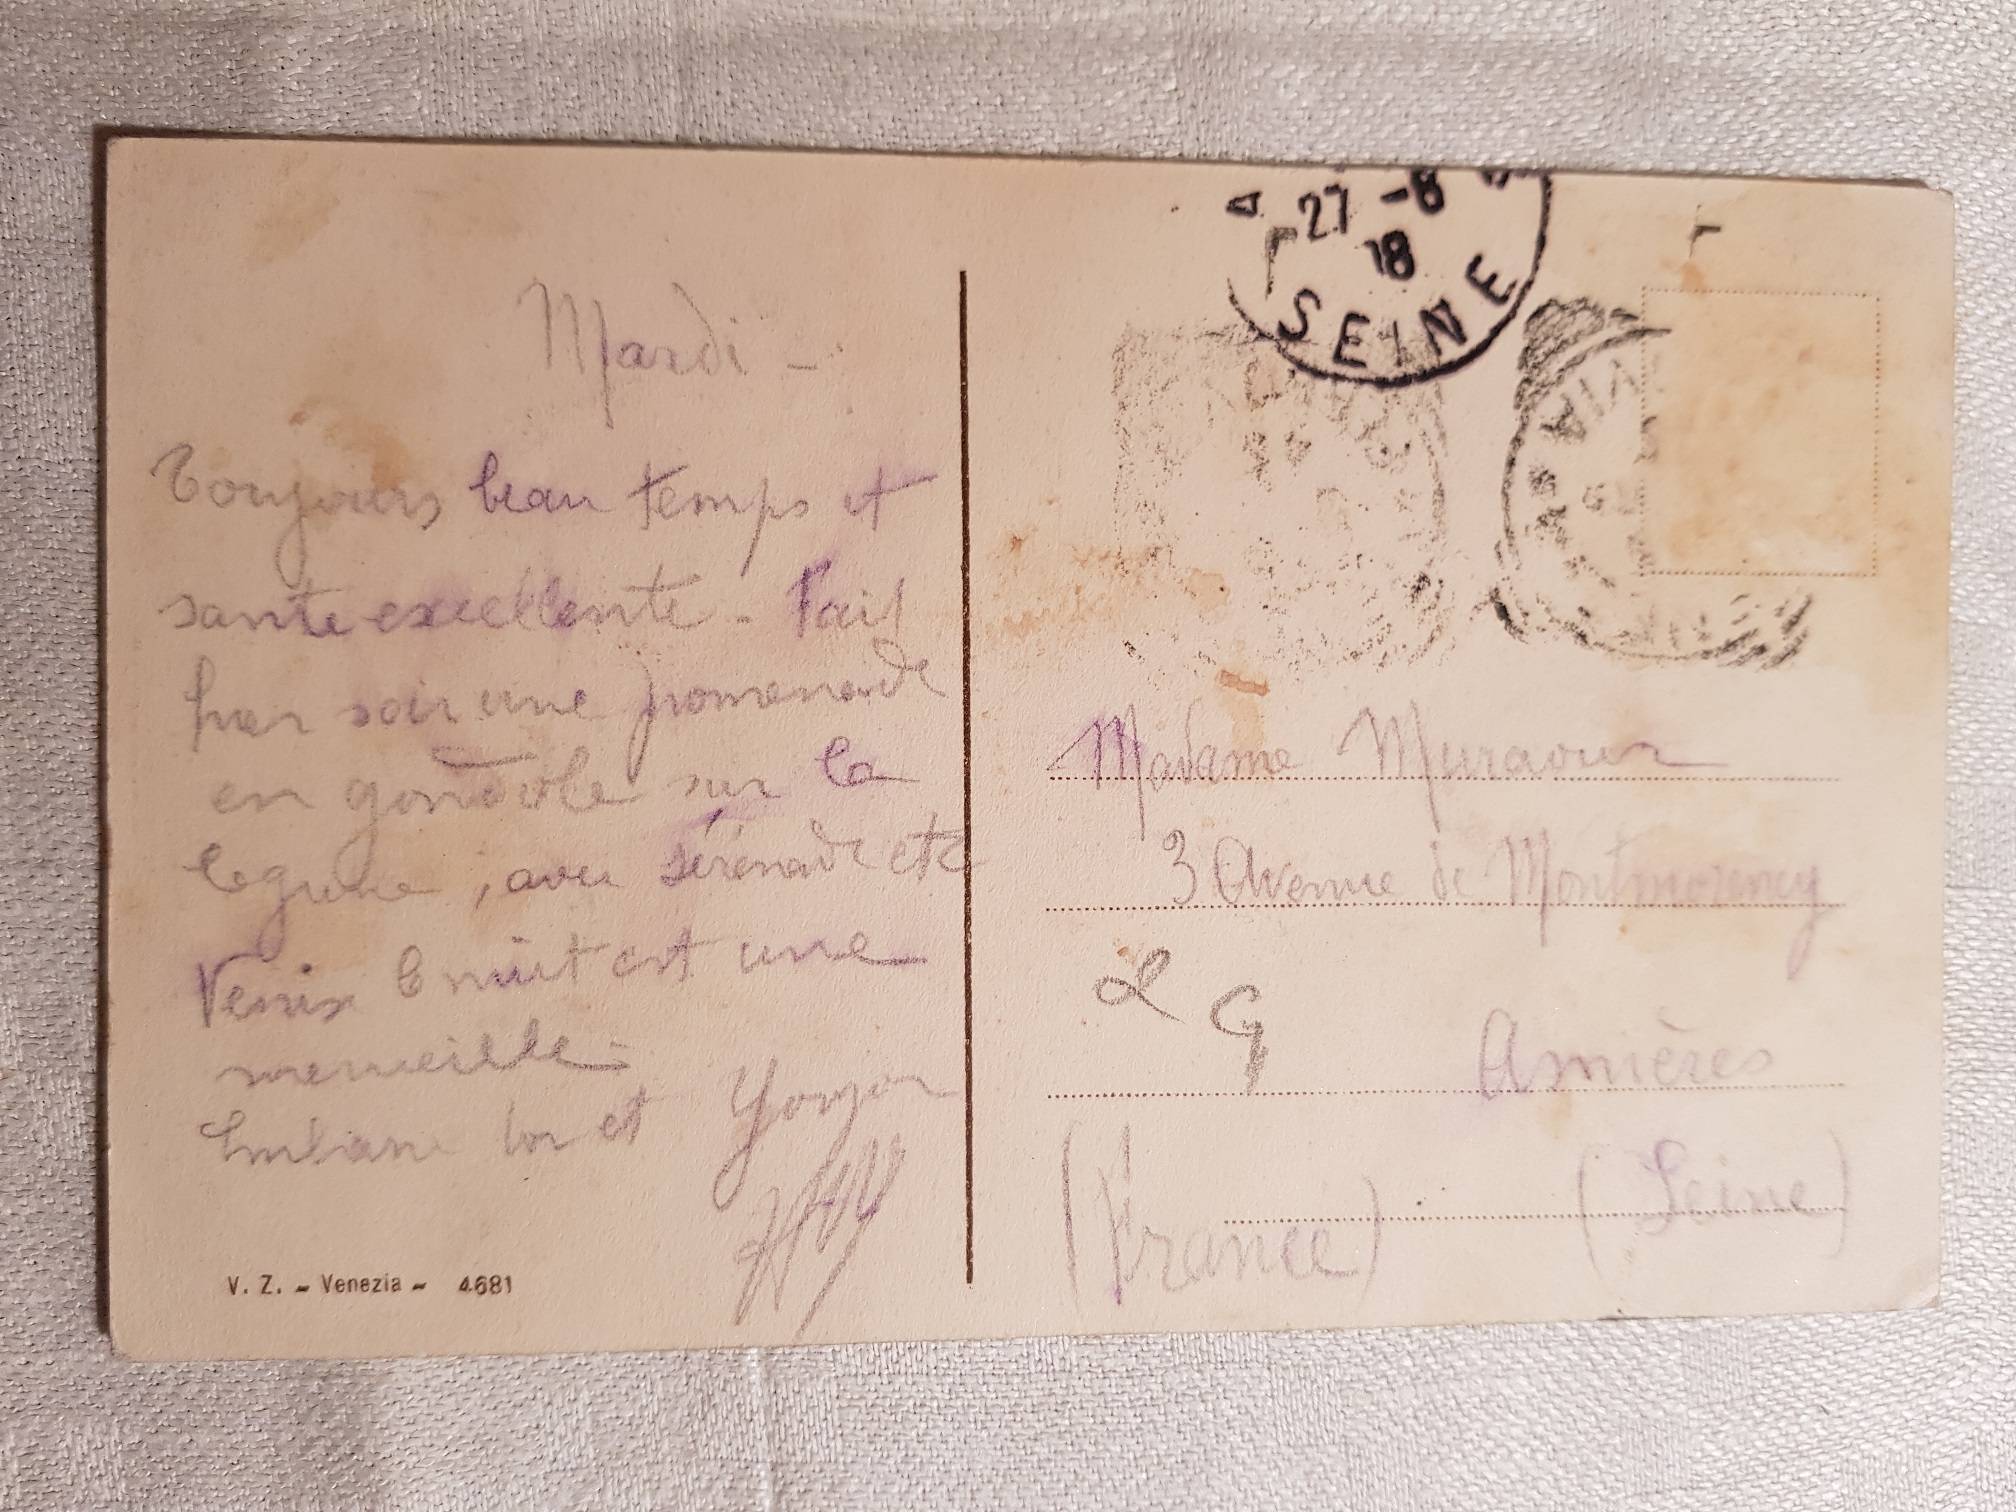 27 -8
18
SEINE
Mardi -
Toujours beau temps et
sante excellente - Fait
hier soir une promenade
en gondole sur la
lagune, avec sérénade etc
Venise la nuit est une
merveille -
Embrasse bon et
Madame Muraour
3 Avenue de Montmorency
L G
Asnières
(Seine)
(France)
V. Z. - Venezia - 4681